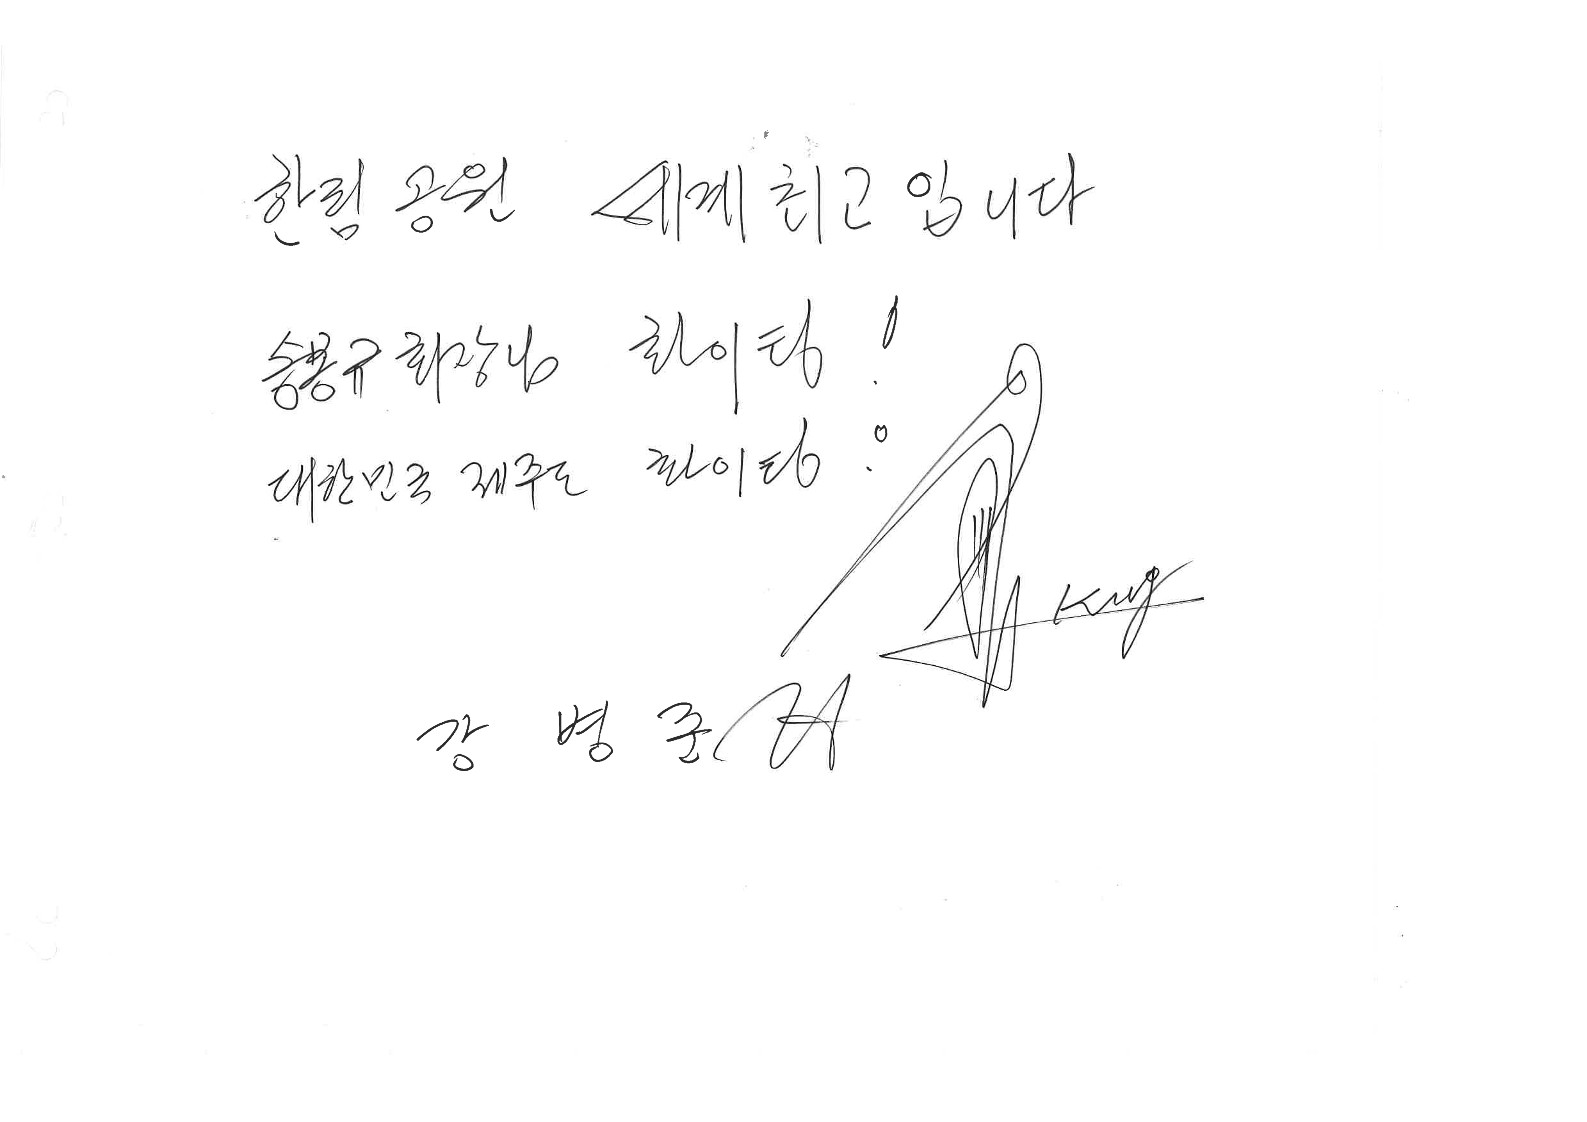 한림공원 세계 최고 입니다
송봉규 회장님 화이팅!
대한민국 제주도 화이팅!
King
강병준